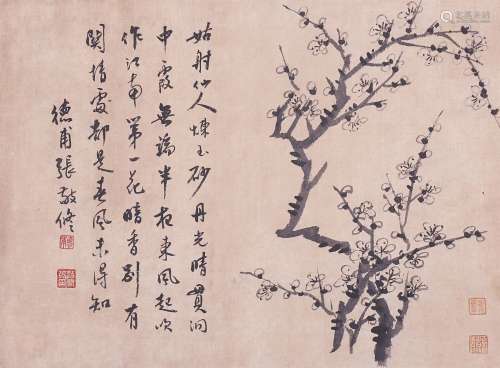 姑射仙人煉玉砂丹光晴貫洞
中霞無端半夜東風起吹
作江南第一花暗香別有
關情處都是春風未得知
德甫張敬修